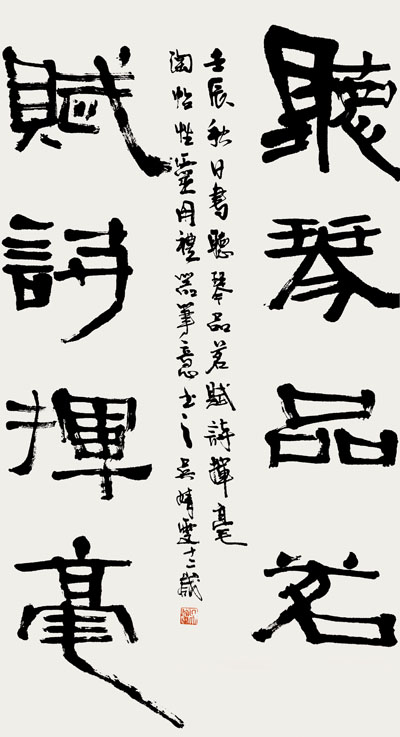 聽琴品茗
賦詩揮毫
壬辰秋日書聽琴品茗賦詩揮毫
陶怡性靈用禮器筆意書之吳晴雯十二歲